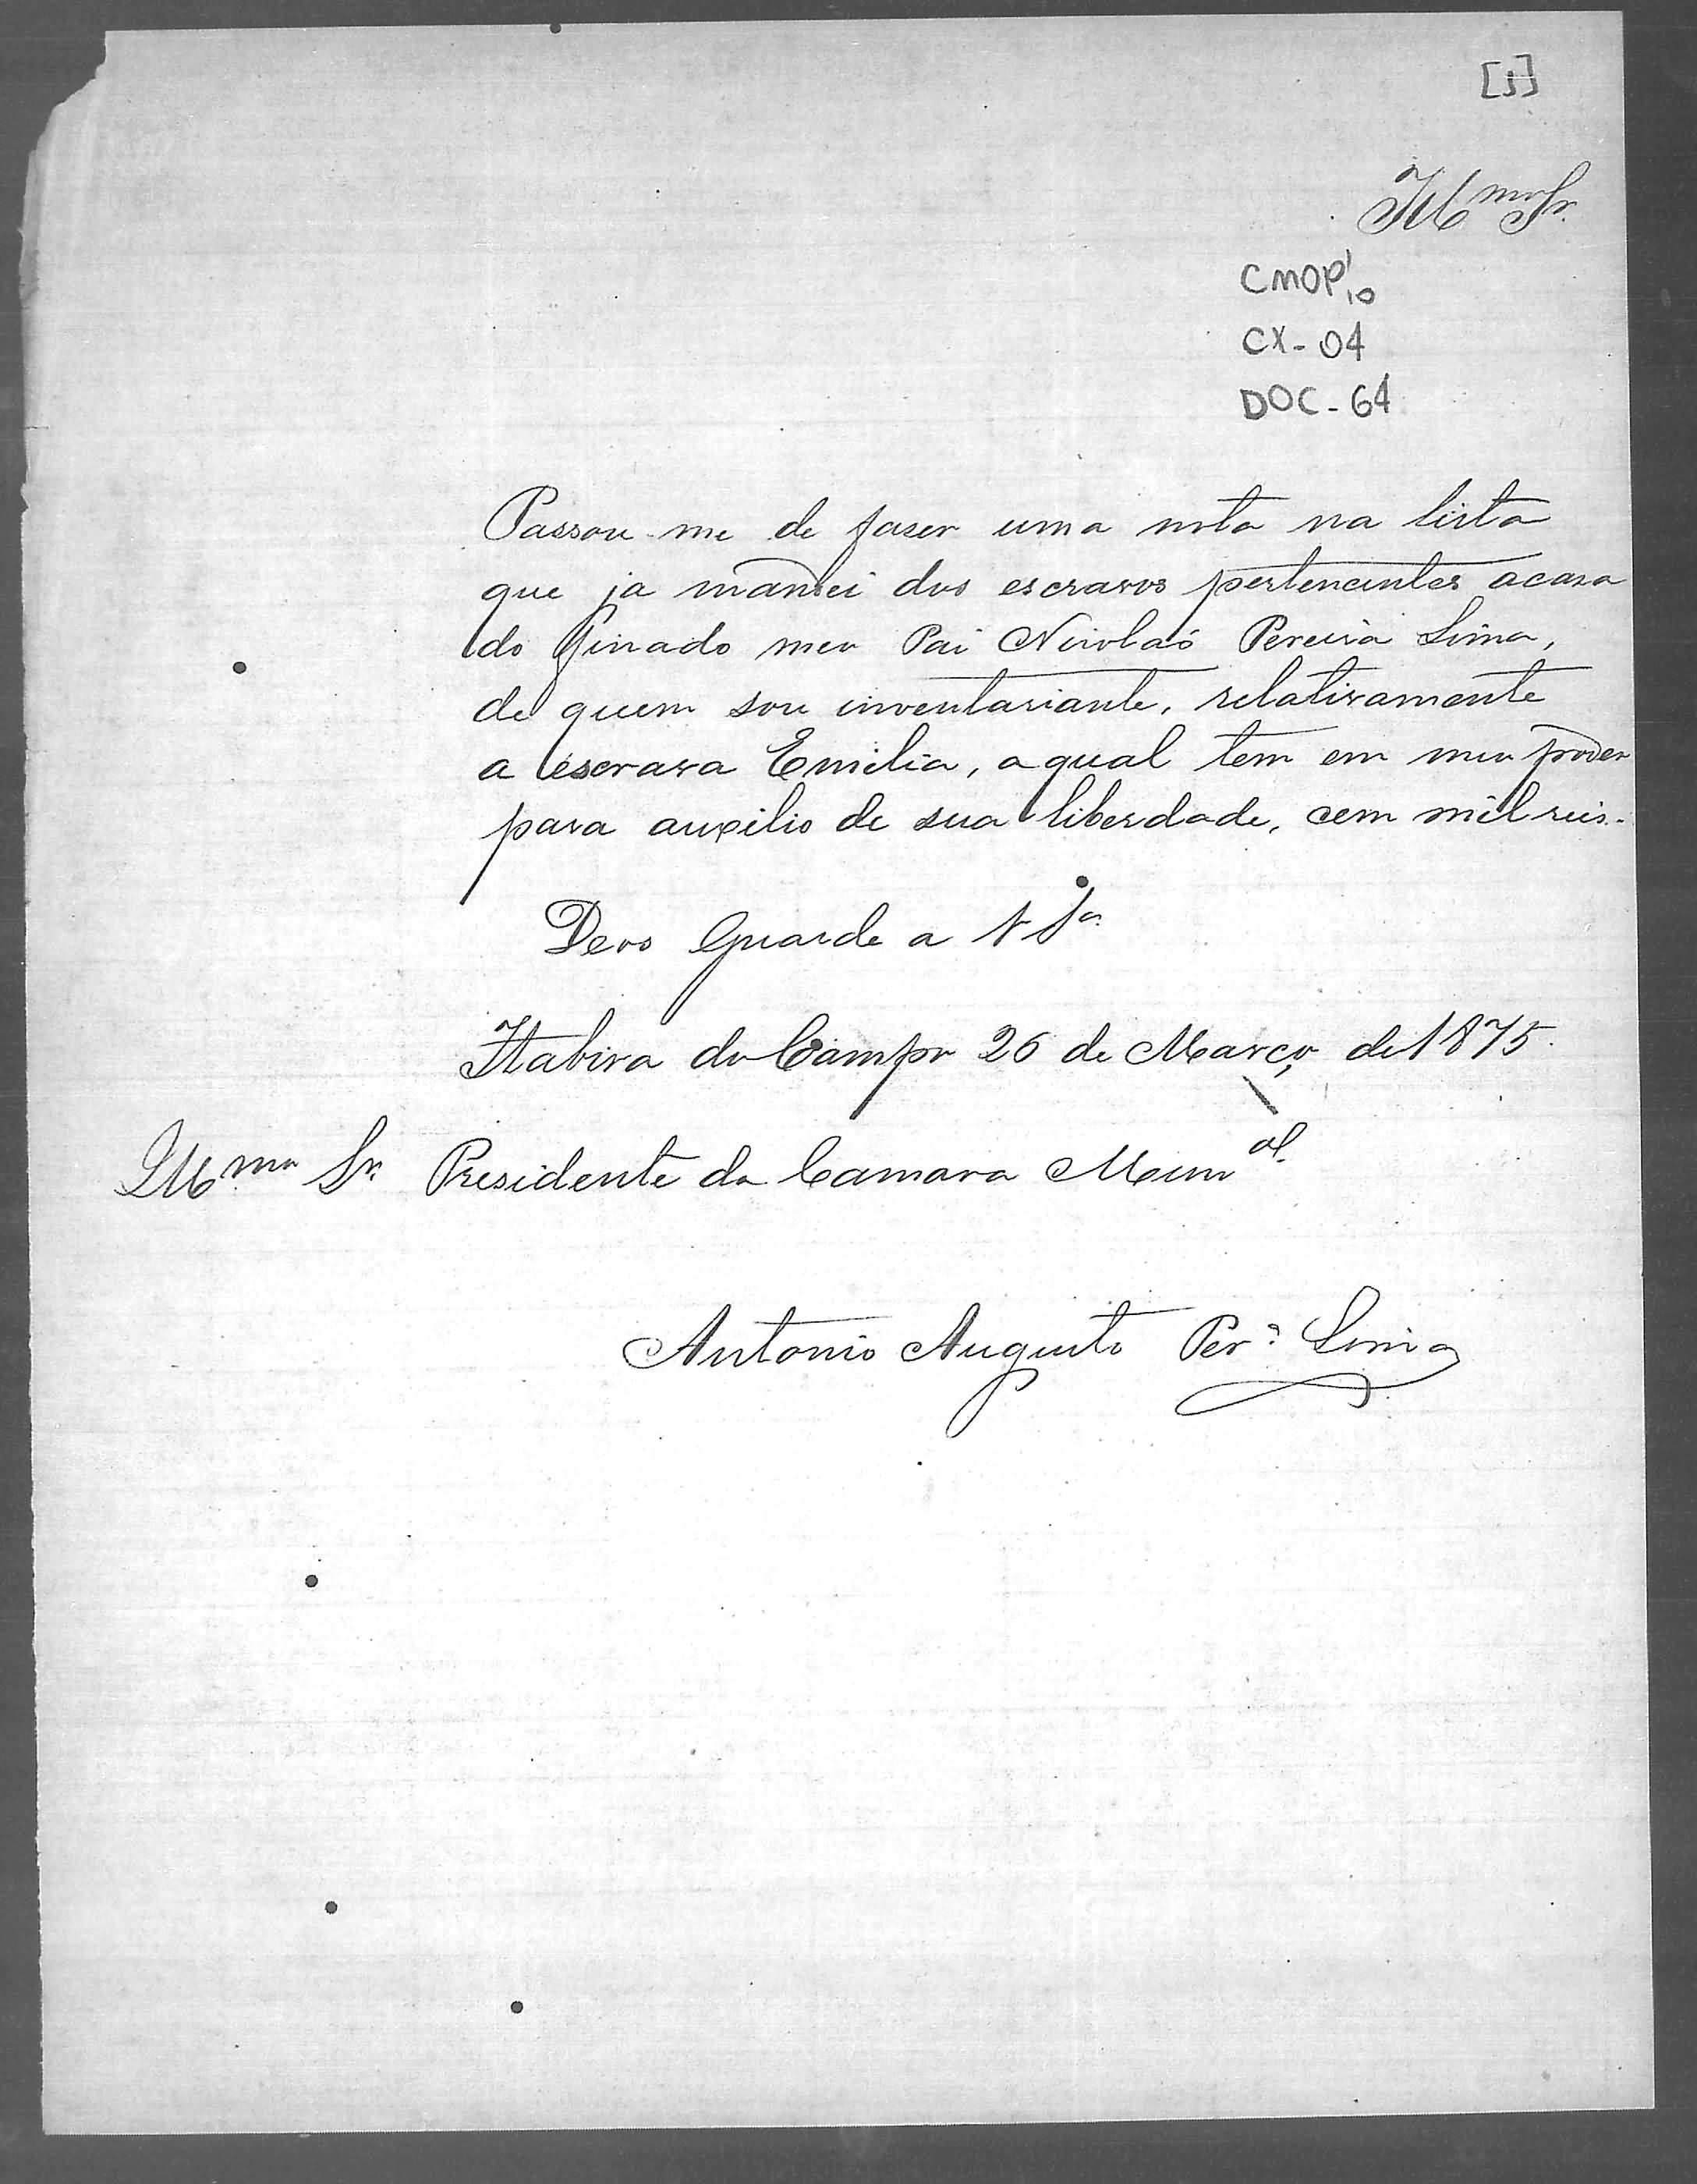 [j]
Illmo Sr.
CMOP 1/10
CX - 04
DOC - 64
Passou-me de faser uma nota na lista
que ja mandei dos escravos pertencentes acasa
do finado meu Pai Nicoláo Pereira Lima,
de quem sou inventariante, relativamente
a escrava Emilia, a qual tem em meu poder
para auxilio de sua liberdade, cem mil reis.
Deos Guarde a V Sa.
Itabira do Campo 26 de Março de 1875.
Illmo Sr. Presidente da Camara Munal.
Antonio Augusto Pera Lima